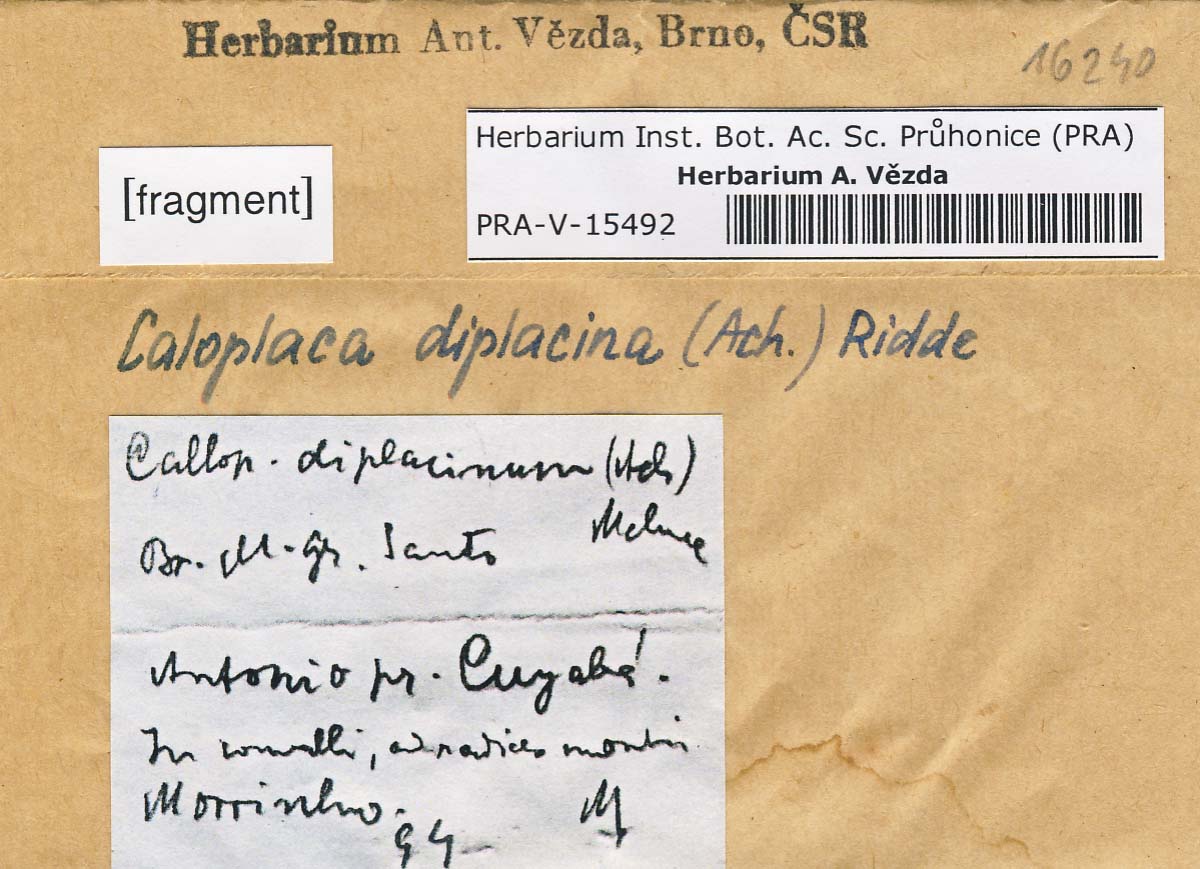 Herbarium Ant. Vězda, Brno, ČSR
16240
Herbarium Inst. Bot. Ac. Sc. Průhonice (PRA)
Herbarium A. Vězda
[fragment]
PRA-V-15492
Caloplaca diplacina (Ach.) Ridde
Callop. diplacinum (Ach)
Br. M. Gr. Santo Malme
Antonio pr. Cuyabá.
In convalli, ad radices montis
Morrinho.
94 M